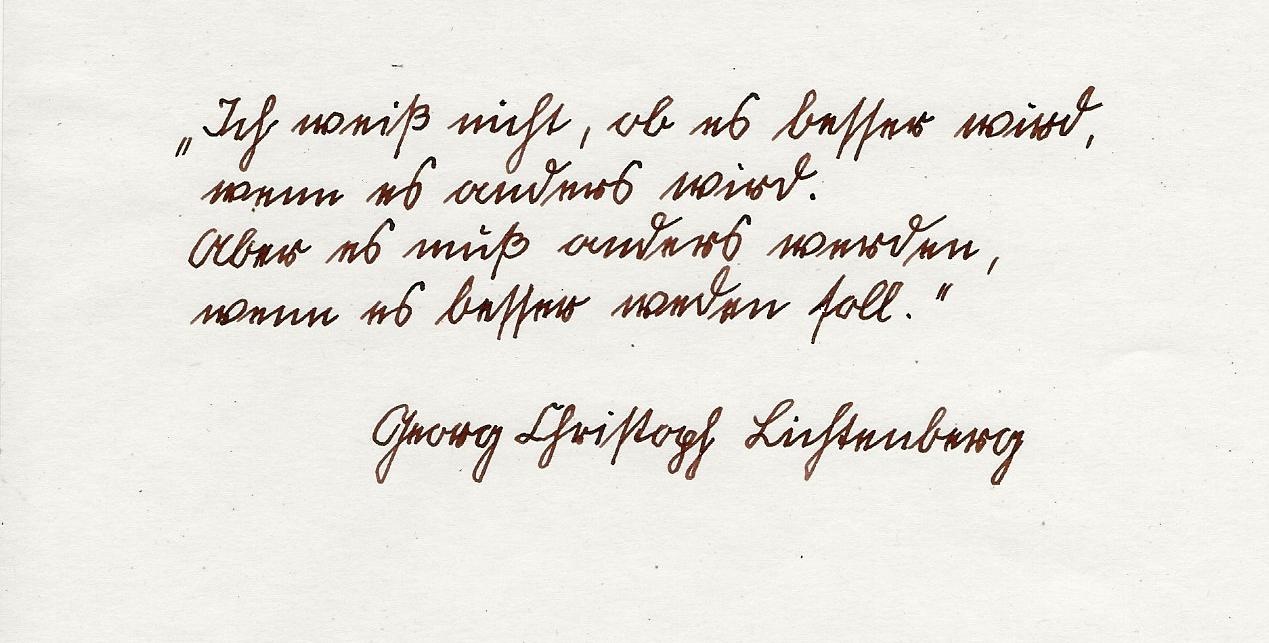 „Ich weiß nicht, ob es besser wird,
wenn es anders wird.
Aber es muß anders werden,
wenn es besser weden soll."
Georg Christoph Lichtenberg